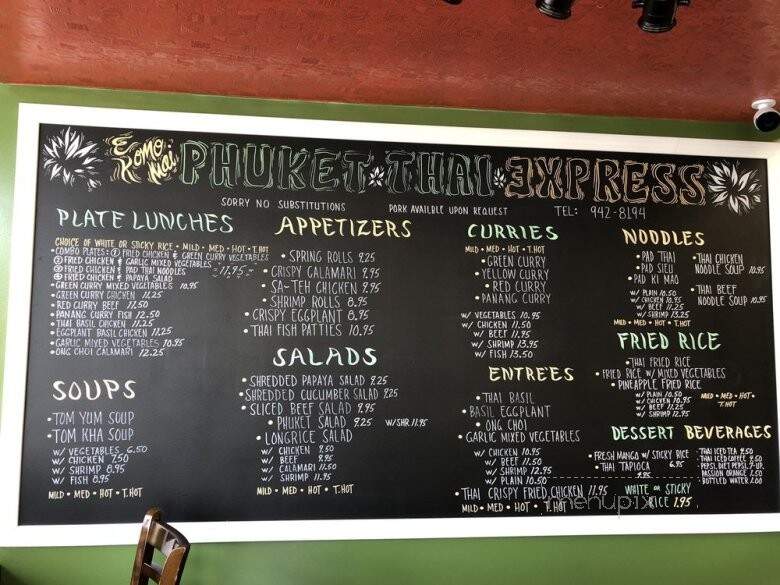 E Komo Mai PHUKET THAI EXPRESS
SORRY NO SUBSTITUTIONS
PORK AVAILBLE UPON REQUEST
TEL: 942-8194
PLATE LUNCHES
CHOICE OF WHITE OR STICKY RICE • MILD • MED • HOT • T.HOT
• COMBO PLATES: ① FRIED CHICKEN & GREEN CURRY VEGETABLES
② FRIED CHICKEN & GARLIC MIXED VEGETABLES
③ FRIED CHICKEN & PAD THAI NOODLES
④ FRIED CHICKEN & PAPAYA SALAD
11.95
• GREEN CURRY MIXED VEGETABLES 10.95
• GREEN CURRY CHICKEN 11.25
• RED CURRY BEEF 11.50
• PANANG CURRY FISH 12.50
• THAI BASIL CHICKEN 11.25
• EGGPLANT BASIL CHICKEN 11.25
• GARLIC MIXED VEGETABLES 10.95
• ONG CHOI CALAMARI 12.25
SOUPS
• TOM YUM SOUP
• TOM KHA SOUP
W/ VEGETABLES 6.50
W/ CHICKEN 7.50
W/ SHRIMP 8.95
W/ FISH 8.95
MILD • MED • HOT • T.HOT
APPETIZERS
• SPRING ROLLS 9.25
• CRISPY CALAMARI 9.95
• SA-TEH CHICKEN 9.95
• SHRIMP ROLLS 8.95
• CRISPY EGGPLANT 8.95
• THAI FISH PATTIES 10.95
SALADS
• SHREDDED PAPAYA SALAD 9.25
• SHREDDED CUCUMBER SALAD 8.25
• SLICED BEEF SALAD 9.95
• PHUKET SALAD 9.25 W/SHR. 11.95
• LONGRICE SALAD
W/ CHICKEN 9.50
W/ BEEF 9.95
W/ CALAMARI 11.50
W/ SHRIMP 11.95
MILD • MED • HOT • T.HOT
CURRIES
MILD • MED • HOT • T.HOT
• GREEN CURRY
• YELLOW CURRY
• RED CURRY
• PANANG CURRY
W/ VEGETABLES 10.95
W/ CHICKEN 11.50
W/ BEEF 11.95
W/ SHRIMP 13.95
W/ FISH 13.50
ENTREES
• THAI BASIL
• BASIL EGGPLANT
• ONG CHOI
• GARLIC MIXED VEGETABLES
W/ CHICKEN 10.95
W/ BEEF 11.50
W/ SHRIMP 12.95
W/ PLAIN 10.50
• THAI CRISPY FRIED CHICKEN 11.95
MILD • MED • HOT • T.HOT
NOODLES
• PAD THAI
• PAD SIEU
• PAD KI MAO
W/ PLAIN 10.50
W/ CHICKEN 10.95
W/ BEEF 11.25
W/ SHRIMP 13.25
MILD • MED • HOT • T.HOT
• THAI CHICKEN
NOODLE SOUP 10.95
• THAI BEEF
NOODLE SOUP 10.95
FRIED RICE
• THAI FRIED RICE
• FRIED RICE W/ MIXED VEGETABLES
• PINEAPPLE FRIED RICE
W/ PLAIN 10.50
W/ CHICKEN 10.95
W/ BEEF 11.25
W/ SHRIMP 12.95
MILD • MED • HOT •
T.HOT
DESSERT
• FRESH MANGO W/ STICKY RICE
6.95
• THAI TAPIOCA
4.95
WHITE OR STICKY
RICE 1.95
BEVERAGES
• THAI ICED TEA 3.50
• THAI ICED COFFEE 3.50
• PEPSI, DIET PEPSI, 7-UP,
PASSION ORANGE 1.50
• BOTTLED WATER 1.00
menupix